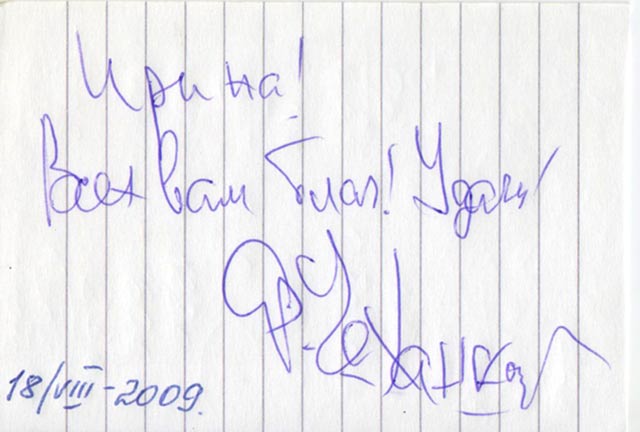 Ирина!
Всех вам благ! Удачи!
18/VIII-2009.